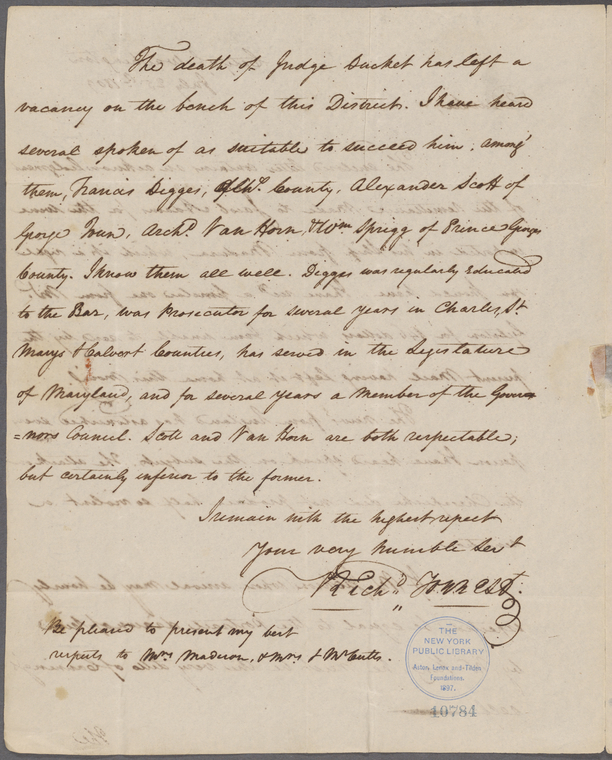 The death of Judge Ducket has left a
vacancy on the bench of this District. I have heard
several spoken of as suitable to succeed him. among'
them, Francis Digges, of Chs. County, Alexander Scott of
George Town, Archd. Van Horn, & Wm Sprigg of Prince Georges
County. I know them all well. Digges was regularly Educated
to the Bar, was Prosecutor for several years in Charles, St
Marys & Calvert Counties, has served in the Legislature
of Maryland, and for several years a member of the Gover
=nors Council. Scott and Van Horn are both respectable;
but certainly inferior to the former.
I remain with the highest respect
Your very humble Sert
Richd. Forrest.
Be pleased to present my best
respects to Mrs. Madison, & Mrs & Mr Cutts.
THE
NEW YORK
PUBLIC LIBRARY
Astor, Lenox and Tilden
Foundations.
1897.
10784